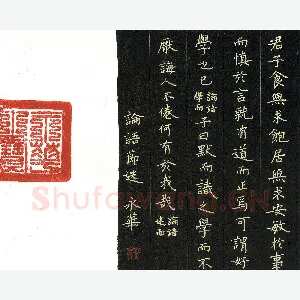 君子食無求飽居無求安敏於事
而慎於言就有道而正焉可謂好
學也已 論語學而 子曰默而識之學而不
厭誨人不倦何有於我哉 論語述而
論語節選 永華
Shufawang.CN